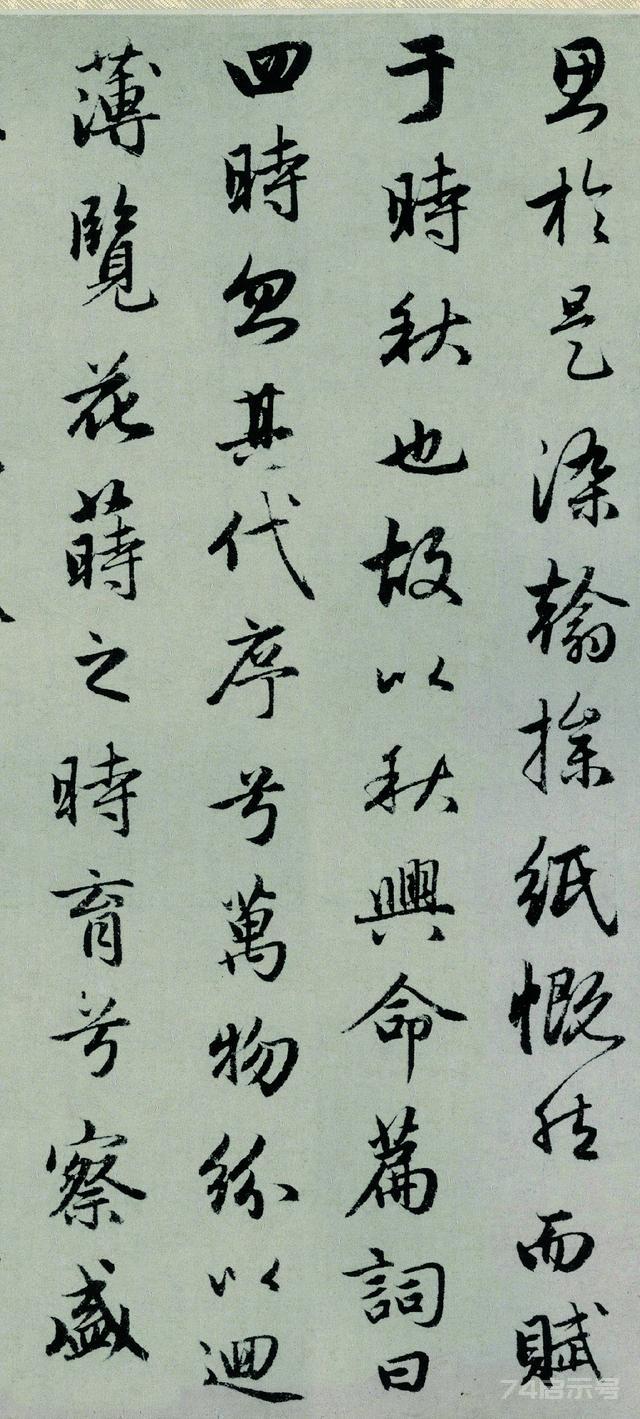 思於是染翰操紙慨然而賦
于時秋也故以秋興命篇詞曰
四時忽其代序兮萬物紛以迴
薄覽花蒔之時育兮察盛
74启示号